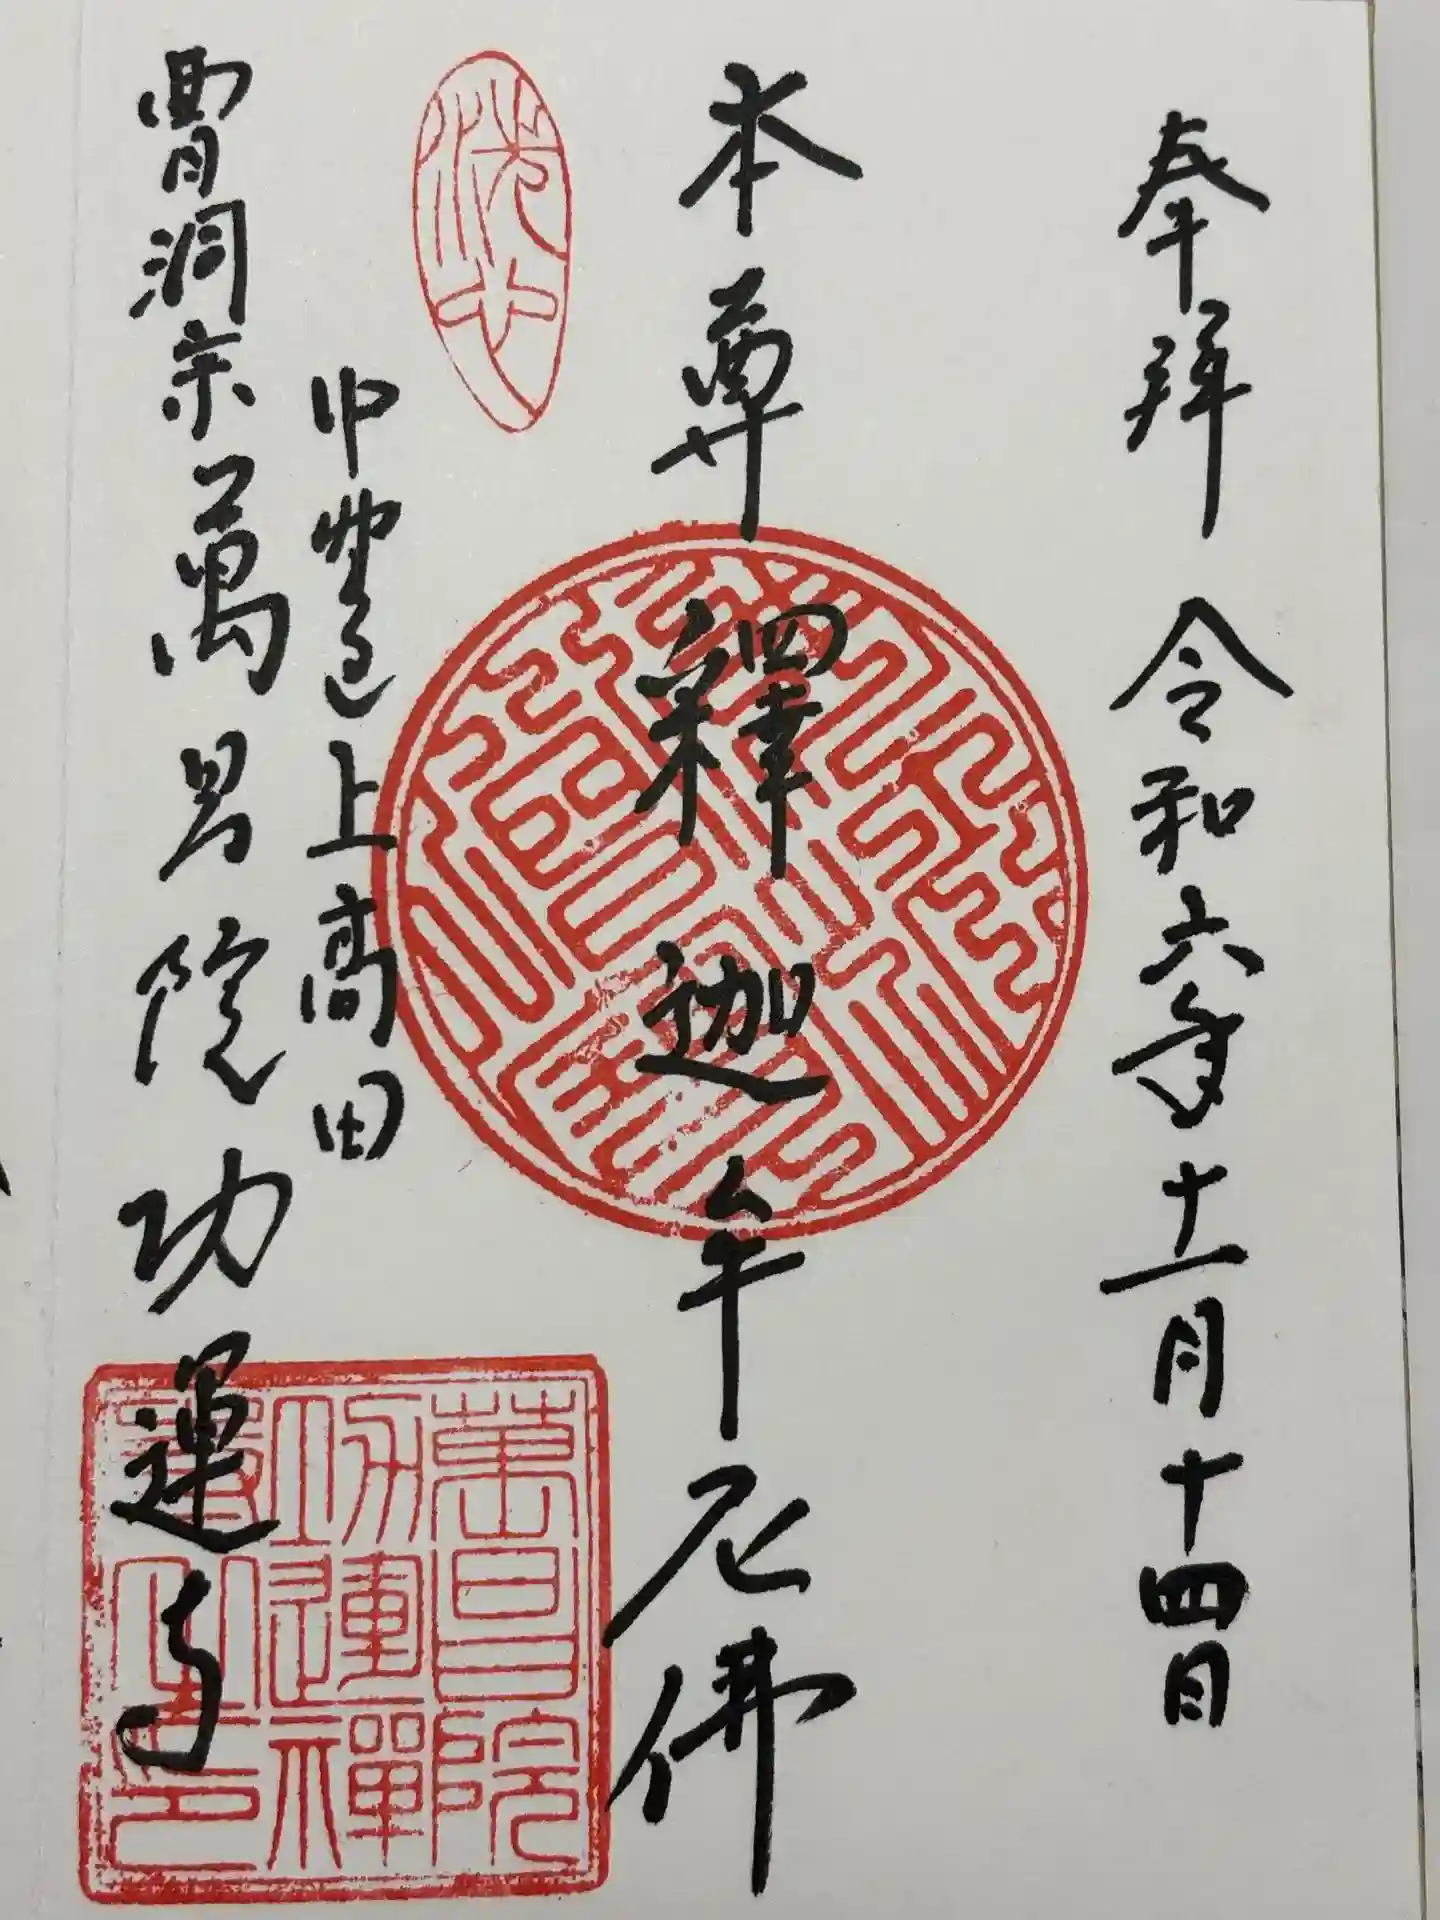 奉拜 令和六年十一月十四日
本尊 釋迦牟尼佛
中野区上高田
曹洞宗 萬昌院功運寺
萬昌院
功運禪